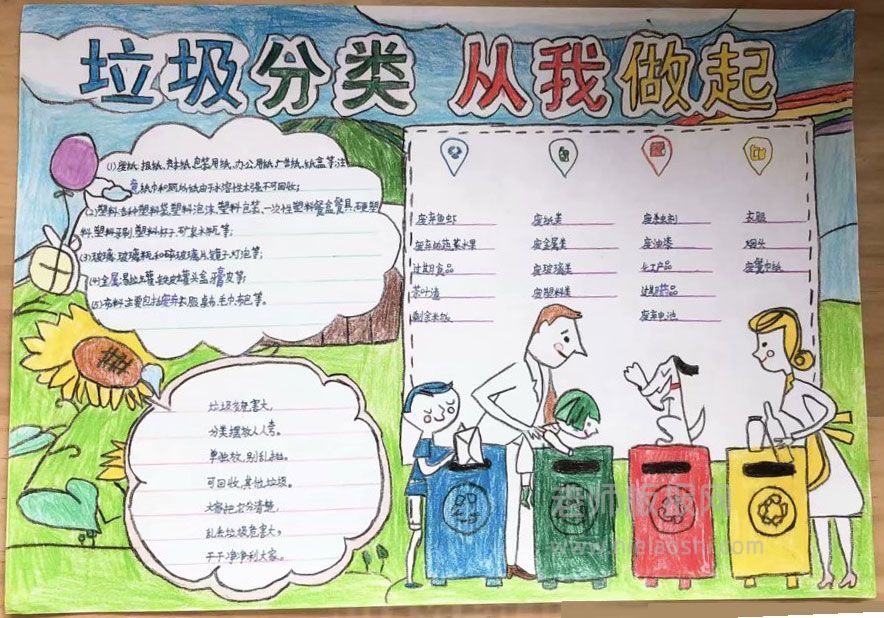 垃圾分类 从我做起
(1) 废纸:报纸、各种纸、包装用纸、办公用纸、广告纸、纸盒等;注
意纸巾和厕所纸由于水溶性太强不可回收;
(2)塑料:各种塑料袋、塑料泡沫、塑料包装、一次性塑料餐盒餐具、硬塑
料、塑料牙刷、塑料杯子、矿泉水瓶等;
(3)玻璃:玻璃瓶和碎玻璃片、镜子、灯泡等;
(4)金属:易拉罐、铁皮罐头盒、牙膏皮等;
(5)布料:主要包括废弃衣服、桌布、毛巾、布包等。
废弃鱼虾 废纸类 废杀虫剂 衣服
废弃的蔬菜水果 废金属类 废油漆 烟头
过期食品 废玻璃类 化工产品 废餐巾纸
茶叶渣 废塑料类 过期药品
剩余米饭 废弃电池
垃圾危害大,
分类摆放人人夸。
单独放,别乱抽。
可回收,其他垃圾。
大家把它分清楚,
乱丢垃圾危害大。
干干净净利大家。
老师板报网